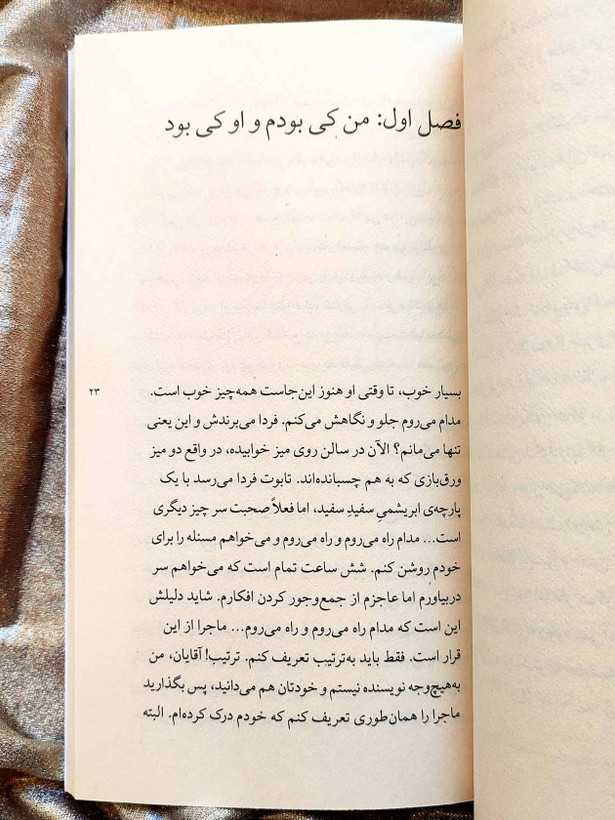 فصل اول: من کی بودم و او کی بود
بسیار خوب، تا وقتی او هنوز این‌جاست همه‌چیز خوب است.
۲۳
مدام می‌روم جلو و نگاهش می‌کنم. فردا می‌برندش و این یعنی
تنها می‌مانم؟ الآن در سالن روی میز خوابیده، در واقع دو میز
ورق‌بازی که به هم چسبانده‌اند. تابوت فردا می‌رسد با یک
پارچه‌ی ابریشمیِ سفیدِ سفید، اما فعلاً صحبت سر چیز دیگری
است... مدام راه می‌روم و راه می‌روم و می‌خواهم مسئله را برای
خودم روشن کنم. شش ساعت تمام است که می‌خواهم سر
دربیاورم اما عاجزم از جمع‌وجور کردن افکارم. شاید دلیلش
این است که مدام راه می‌روم و راه می‌روم... ماجرا از این
قرار است. فقط باید به‌ترتیب تعریف کنم. ترتیب! آقایان، من
به‌هیچ‌وجه نویسنده نیستم و خودتان هم می‌دانید، پس بگذارید
ماجرا را همان‌طوری تعریف کنم که خودم درک کرده‌ام. البته